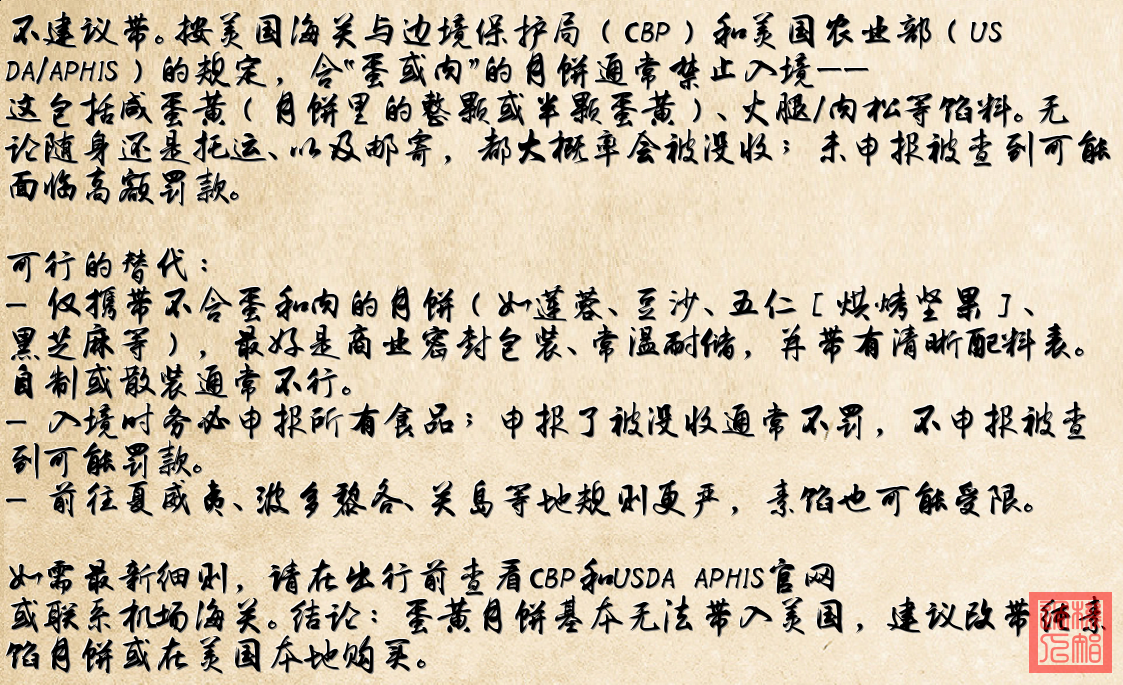 不建议带。按美国海关与边境保护局（CBP）和美国农业部（US
DA/APHIS）的规定，含“蛋或肉”的月饼通常禁止入境——
这包括咸蛋黄（月饼里的整颗或半颗蛋黄）、火腿/肉松等馅料。无
论随身还是托运、以及邮寄，都大概率会被没收；未申报被查到可能
面临高额罚款。
可行的替代：
- 仅携带不含蛋和肉的月饼（如莲蓉、豆沙、五仁［烘烤坚果］、
黑芝麻等），最好是商业密封包装、常温耐储，并带有清晰配料表。
自制或散装通常不行。
- 入境时务必申报所有食品；申报了被没收通常不罚，不申报被查
到可能罚款。
- 前往夏威夷、波多黎各、关岛等地规则更严，素馅也可能受限。
如需最新细则，请在出行前查看CBP和USDA APHIS官网
或联系机场海关。结论：蛋黄月饼基本无法带入美国，建议改带纯素
馅月饼或在美国本地购买。